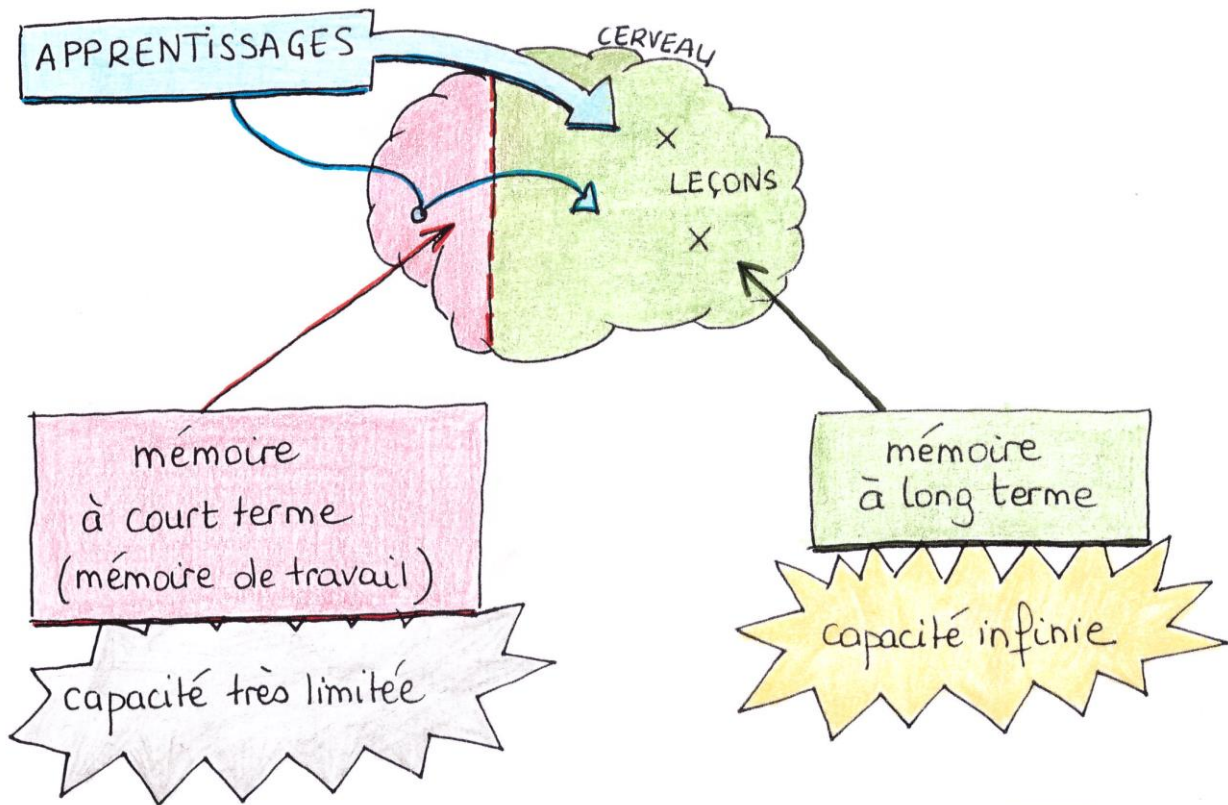 APPRENTISSAGES
CERVEAU
LEÇONS
mémoire
à court terme
(mémoire de travail)
capacité très limitée
mémoire
à long terme
capacité infinie